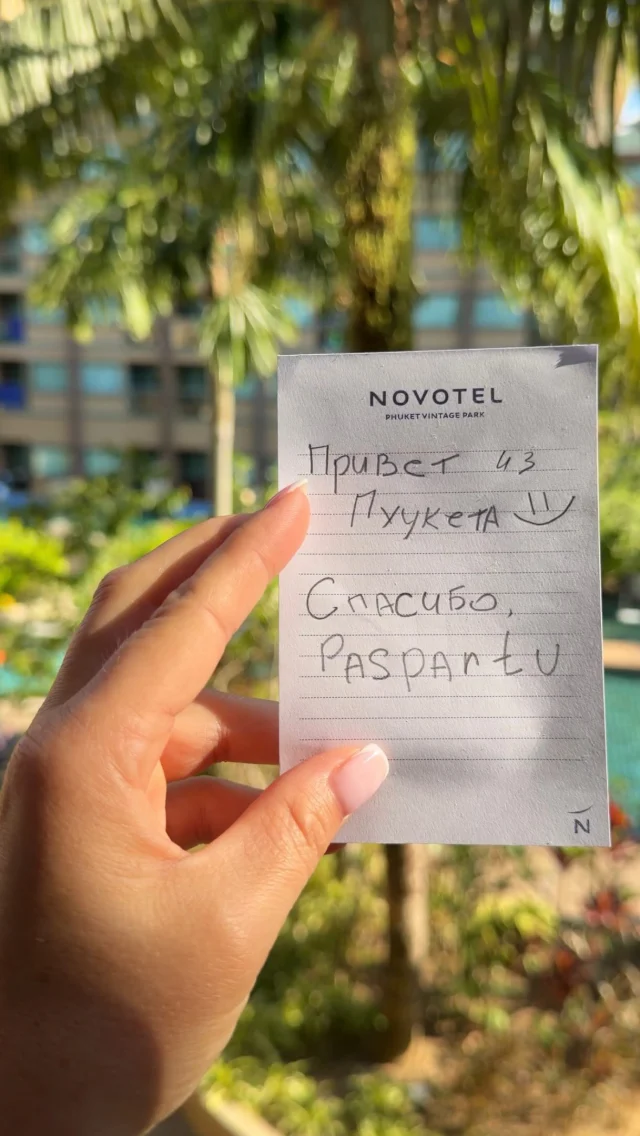 NOVOTEL
PHUKET VINTAGE PARK
Привет из
Пхукета
Спасибо,
PASPARtU
N